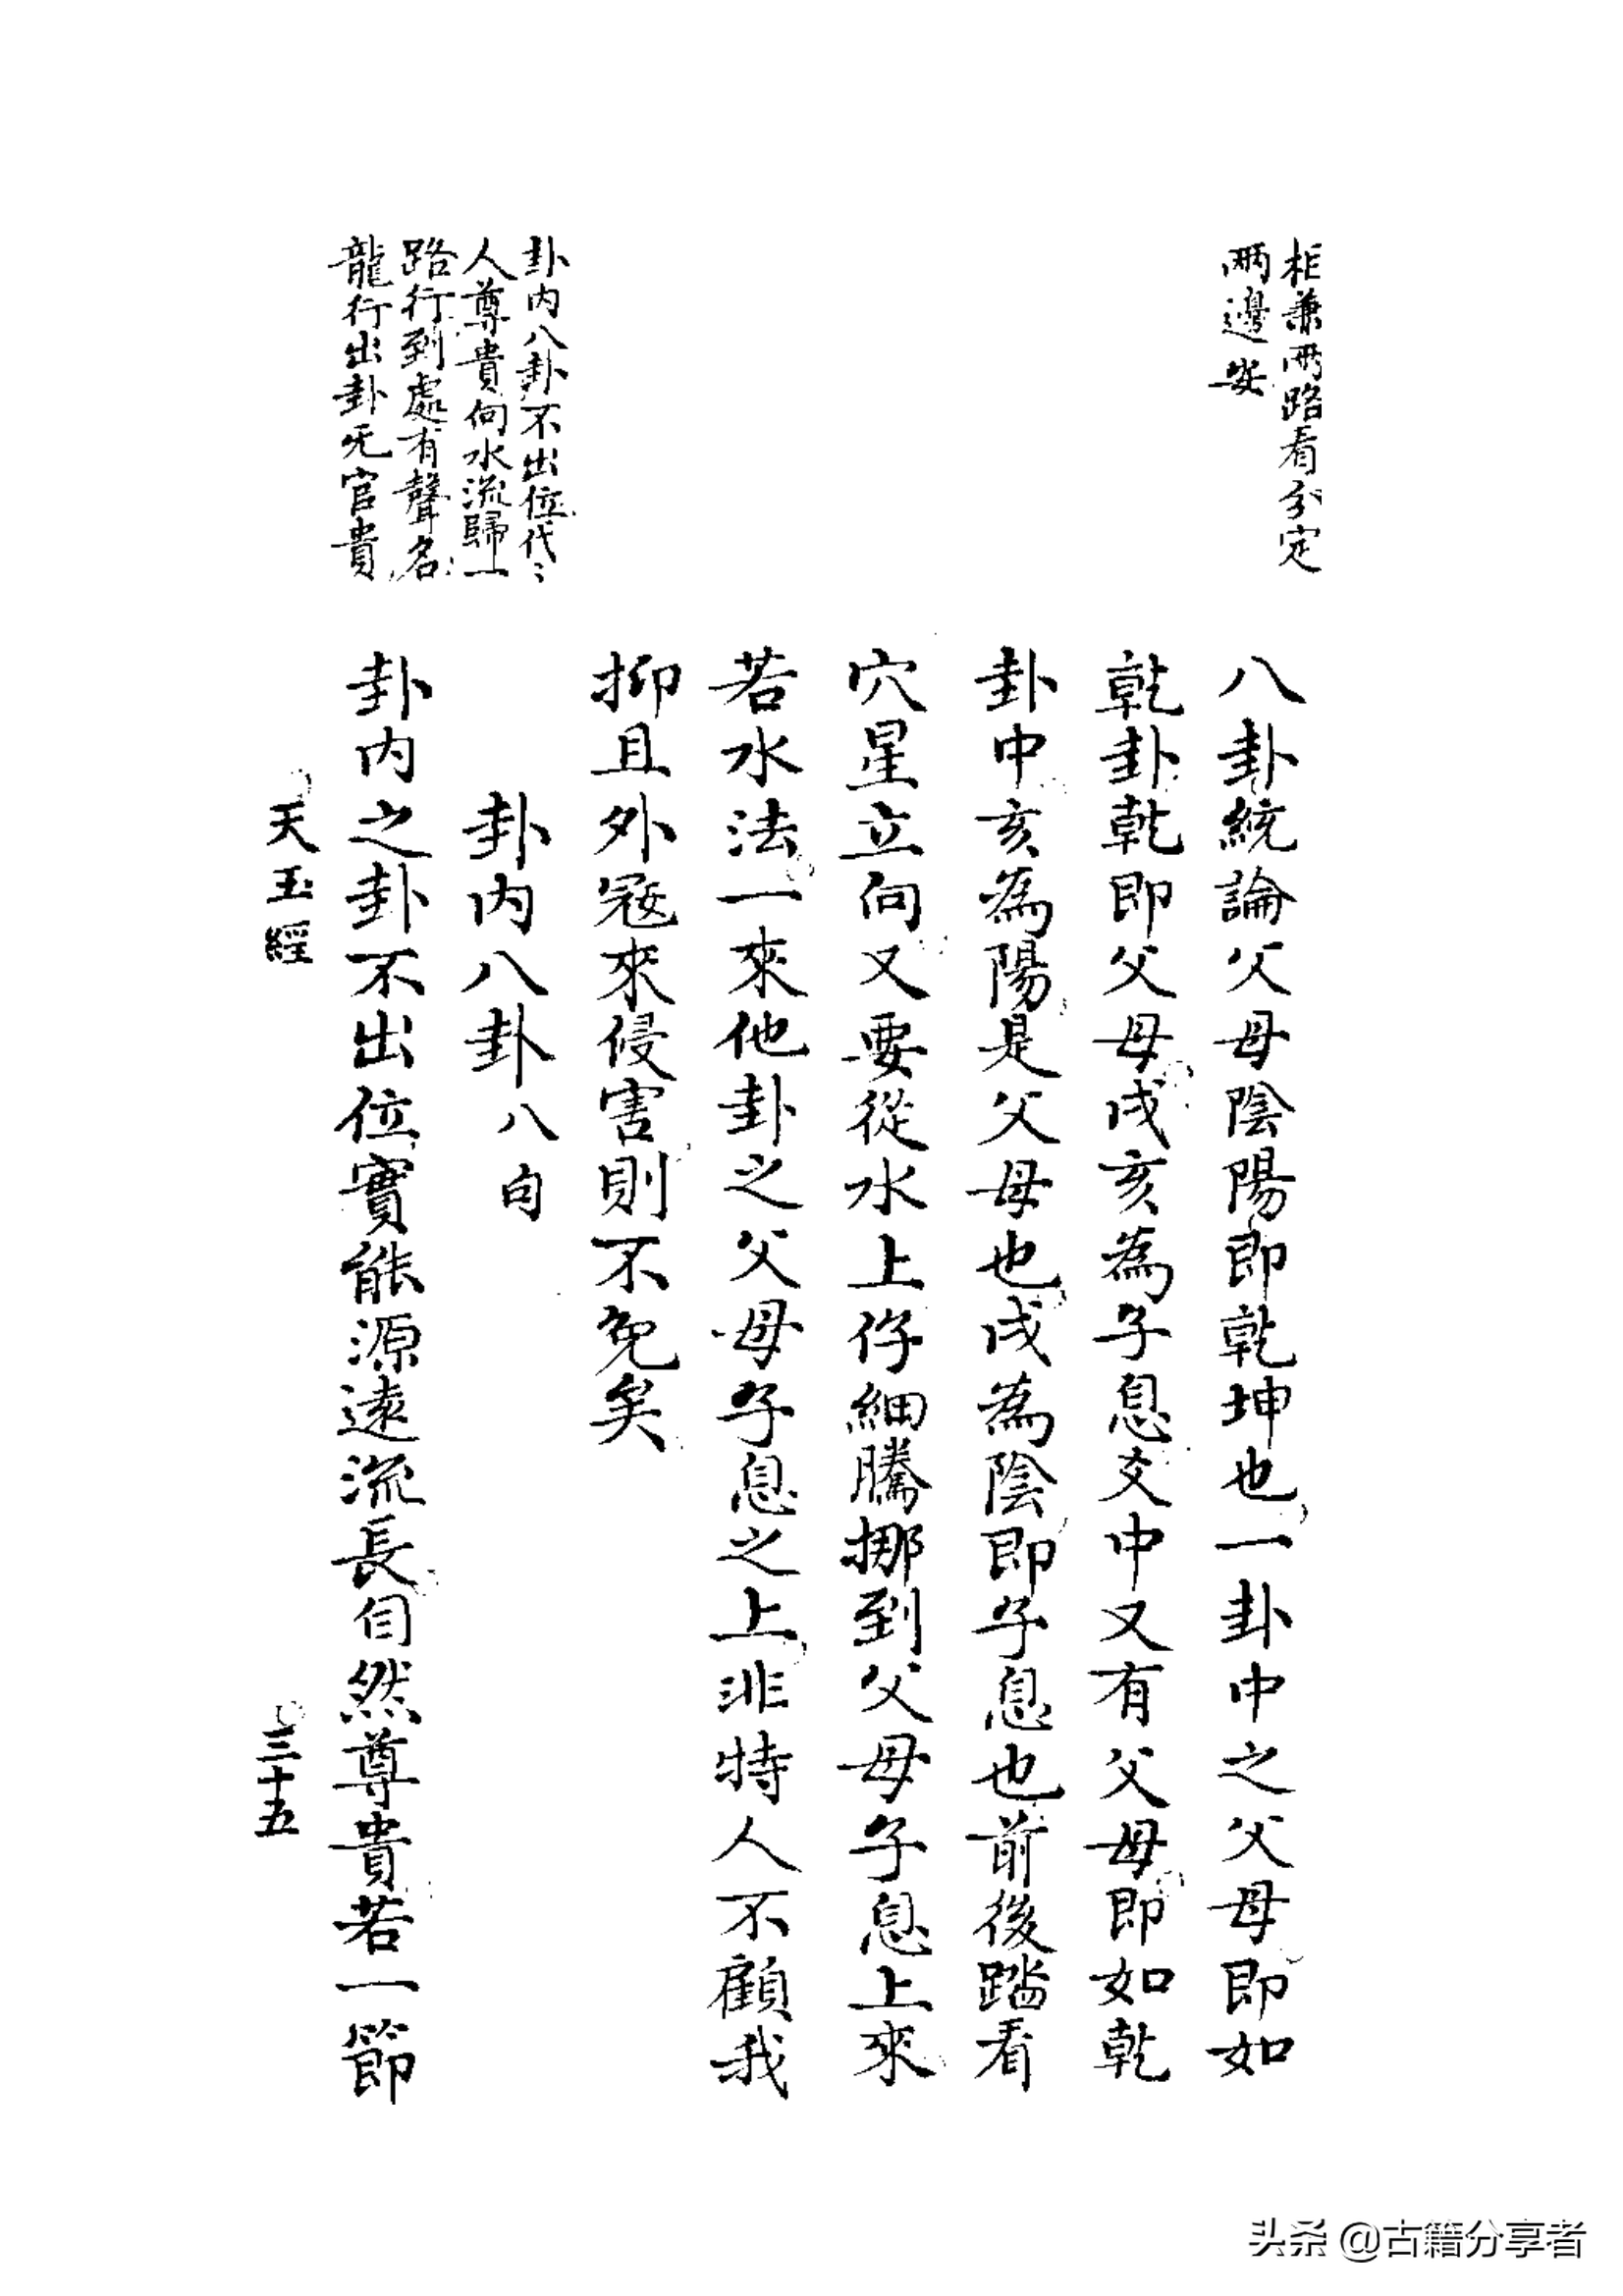 相兼兩路看分定
兩邊安
八卦統論父母陰陽即乾坤也一卦中之父母即如
乾卦乾即父母戌亥為子息爻中又有父母即如乾
卦中亥為陽是父母也戌為陰即子息也前後踏看
穴星立向又要從水上仔細騰挪到父母子息上來
若水法一來他卦之父母子息之上非特人不顧我
抑且外冦來侵害則不免矣
卦内八卦不出位代〻
人尊貴向水流歸一
路行到處有聲名
龍行出卦无官貴
卦内八卦八句
卦内之卦不出位實能源遠流長自然尊貴若一節
天玉經
三十五
头条 @古籍分享者